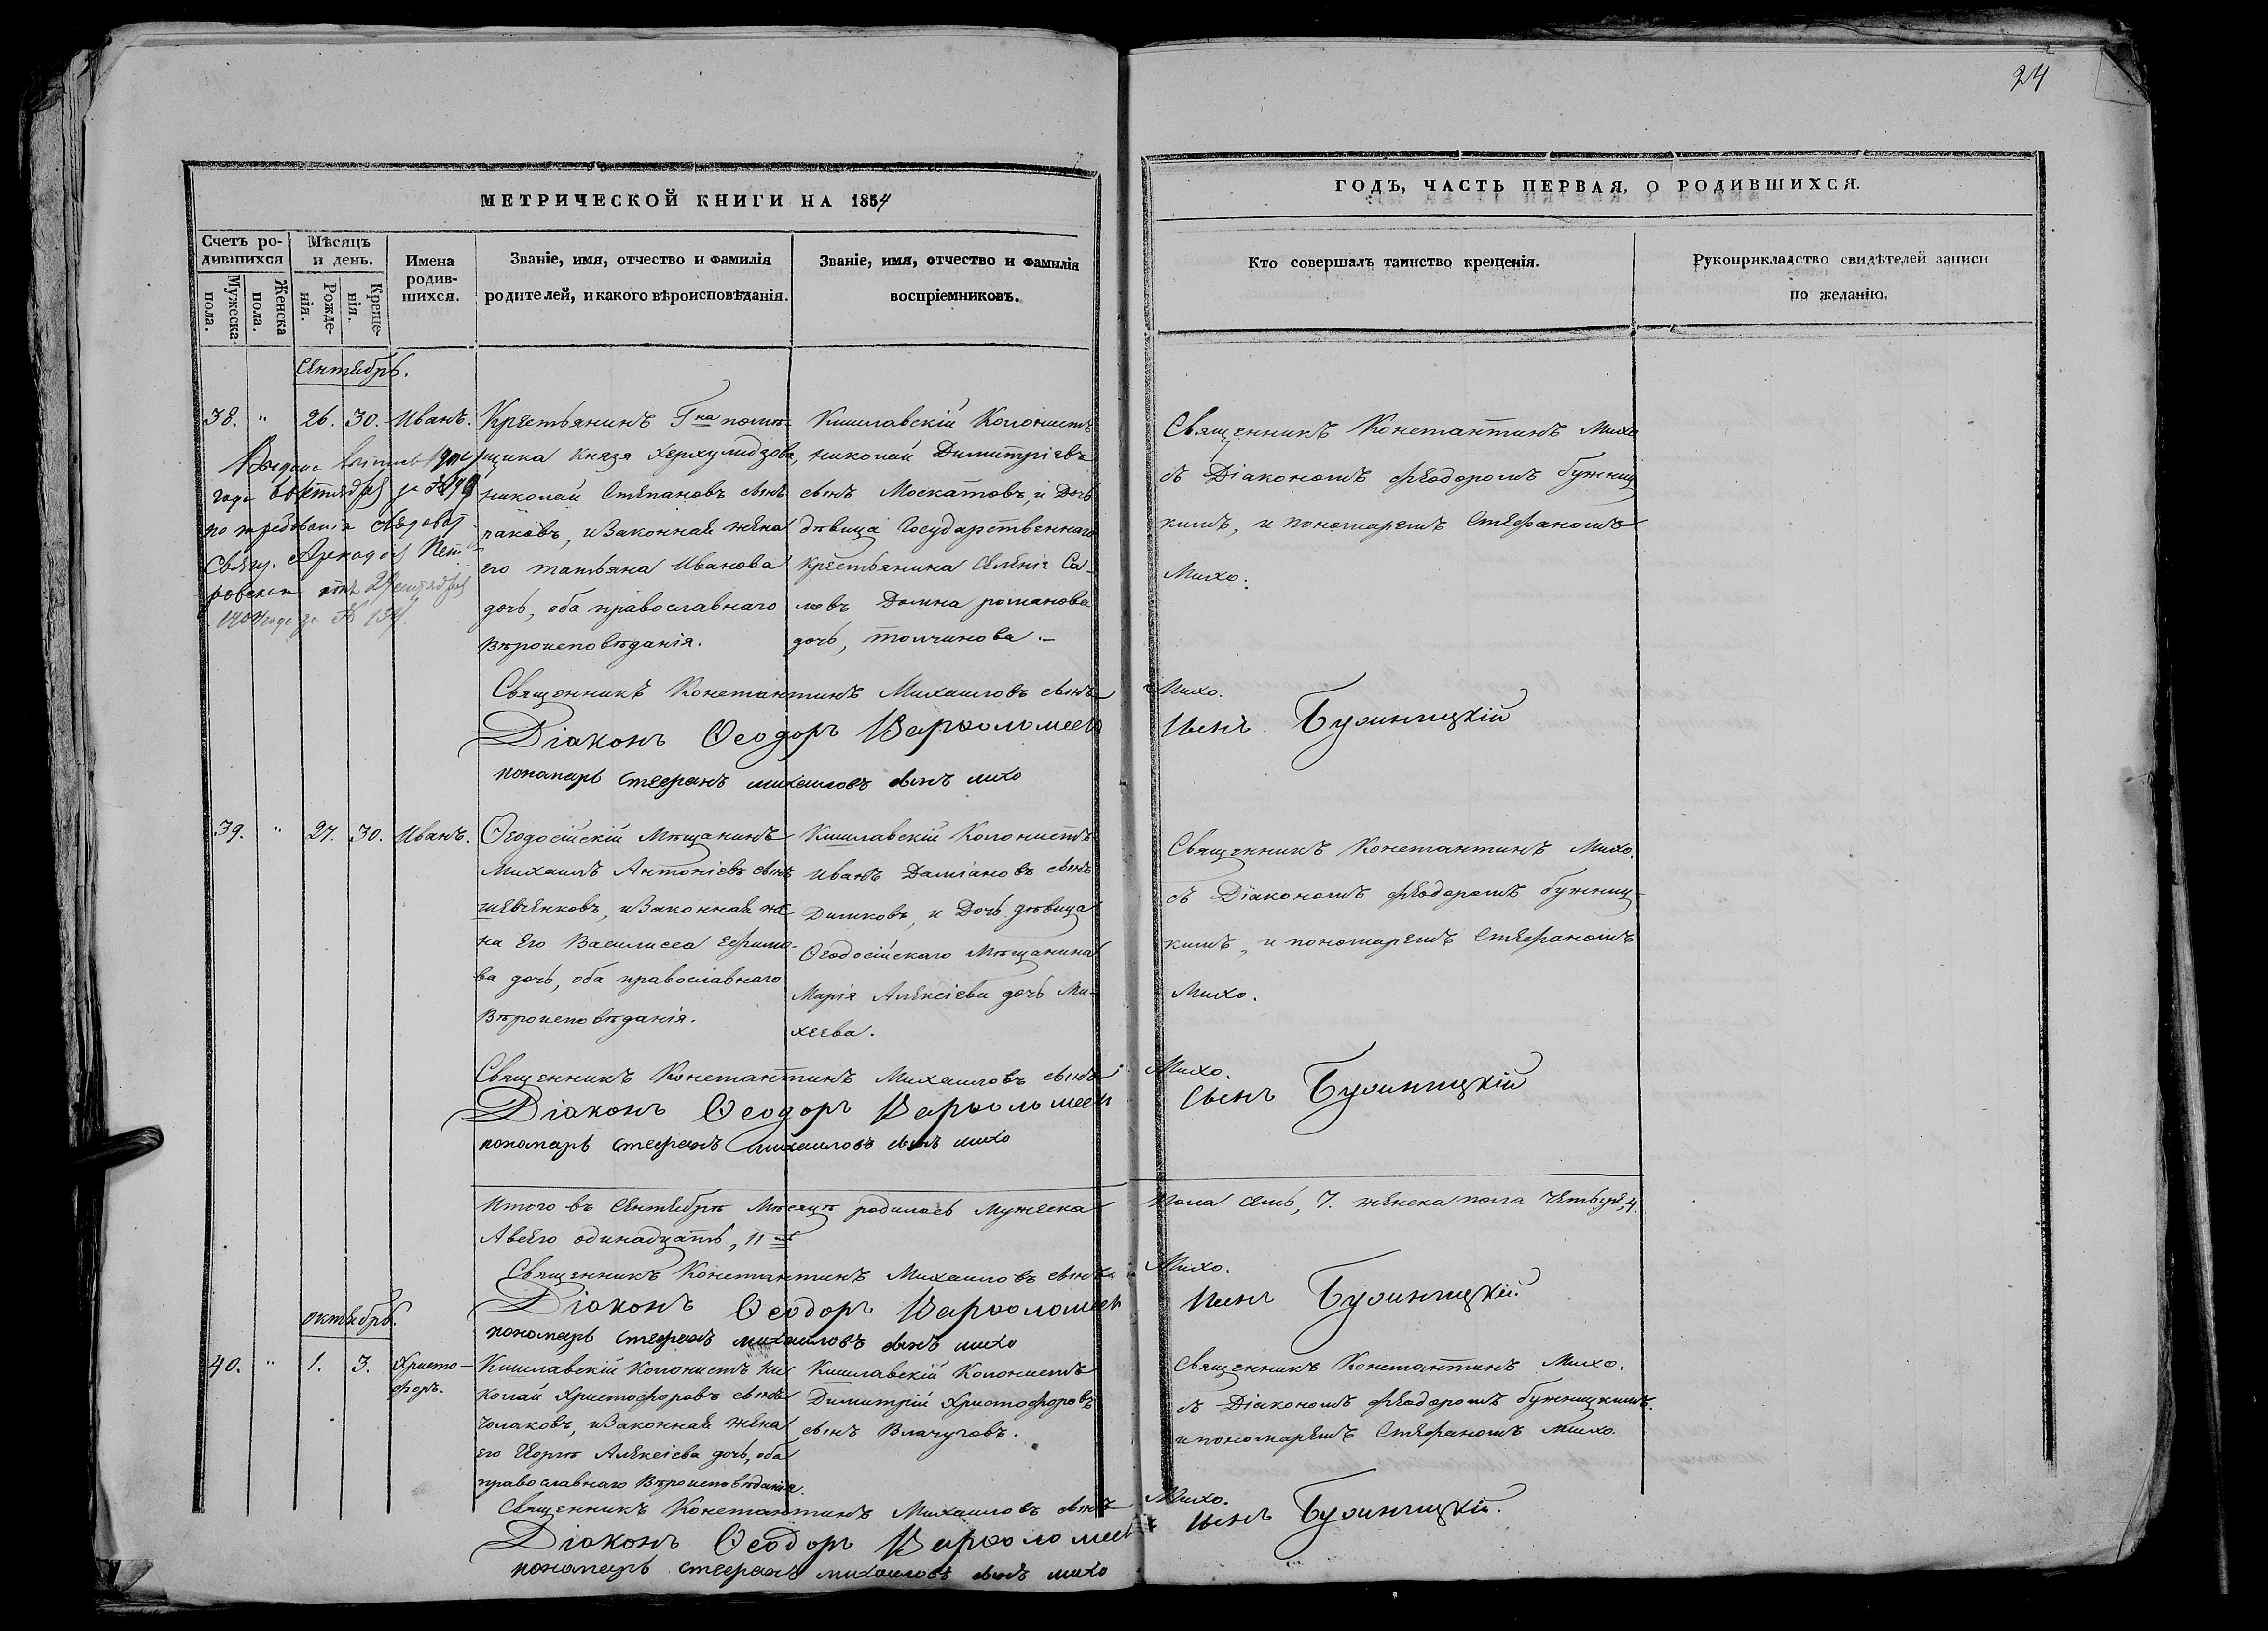 24
МЕТРИЧЕСКОЙ КНИГИ НА 1854
ГОДЪ, ЧАСТЬ ПЕРВАЯ, О РОДИВШИХСЯ.
Счетъ ро-
дившихся
Мужеска
пола.
Женска
пола.
Мѣсяцъ
и день.
Рожде-
нія.
Креще-
нія.
Имена
родив-
шихся.
Званіе, имя, отчество и фамилія
родителей, и какого вѣроисповѣданія.
Званіе, имя, отчество и фамилія
воспріемниковъ.
Кто совершалъ таинство крещенія.
Рукоприкладство свидѣтелей записи
по желанію.
Сентябрь.
38. " 26. 30. Иванъ.
Крестьянинъ Гна помѣ-
щика Князя Херхулидзова,
Николай Степановъ сынъ
раковъ, и Законная жена
его татьяна Иванова
дочь, оба православнаго
Вѣроисповѣданія.
Кишлавскій Колонистъ
Николай Димитріевъ
сынъ Москатовъ, и Дочь
дѣвица Государственнаго
крестьянина Селенія Са-
ловъ Домна романова
дочь, толчинова.
Священникъ Константинъ Михо
съ Діакономъ Феодоромъ бужниц
кимъ, и пономаремъ Стефаномъ
Михо.
года за №
по требованію
Свящ.
1904 года за № 134
Священникъ Константинъ Михаиловъ сынъ Михо.
Діаконъ Ѳеодоръ Варѳоломеевъ сынъ Бужницкій
пономарь стефанъ михаиловъ сынъ михо
39. " 27. 30. Иванъ.
Ѳеодосійскій Мѣщанинъ
Михаилъ Антоніевъ сынъ
шевченковъ, и Законная же
на его Василисса Ефимо-
ва дочь, оба православнаго
Вѣроисповѣданія.
Кишлавскій Колонистъ
Иванъ Даміановъ сынъ
Димковъ, и Дочь дѣвица
Ѳеодосійскаго Мѣщанина
Марія Алексіева дочь Ми-
хеева.
Священникъ Константинъ Михо.
съ Діакономъ Феодоромъ бужниц-
кимъ, и пономаремъ Стефаномъ
Михо.
Священникъ Константинъ Михаиловъ сынъ Михо.
Діаконъ Ѳеодоръ Варѳоломеевъ сынъ Бужницкій
пономарь стефанъ михаиловъ сынъ михо
Итого въ Сентябрѣ Мѣсяцѣ родилось Мужеска пола семь, 7. женска пола четыре, 4.
А всего одинадцать, 11
Священникъ Константинъ Михаиловъ сынъ Михо.
Діаконъ Ѳеодоръ Варѳоломеевъ сынъ Бужницкій.
пономарь стефанъ михаиловъ сынъ михо
октябрь.
40. " 1. 3. Христо-
форъ.
Кишлавскій Колонистъ Ни
колай Христофоровъ сынъ
чолаковъ, и Законная жена
его Алексіева дочь, оба
православнаго Вѣроисповѣданія.
Кишлавскій Колонистъ
Димитрій Христофоровъ
сынъ Влачуговъ.
Священникъ Константинъ Михо.
съ Діакономъ Феодоромъ бужницкимъ.
и пономаремъ Стефаномъ Михо
Священникъ Константинъ Михаиловъ сынъ Михо.
Діаконъ Ѳеодоръ Варѳоломеевъ сынъ Бужницкій.
пономарь стефанъ михаиловъ сынъ михо